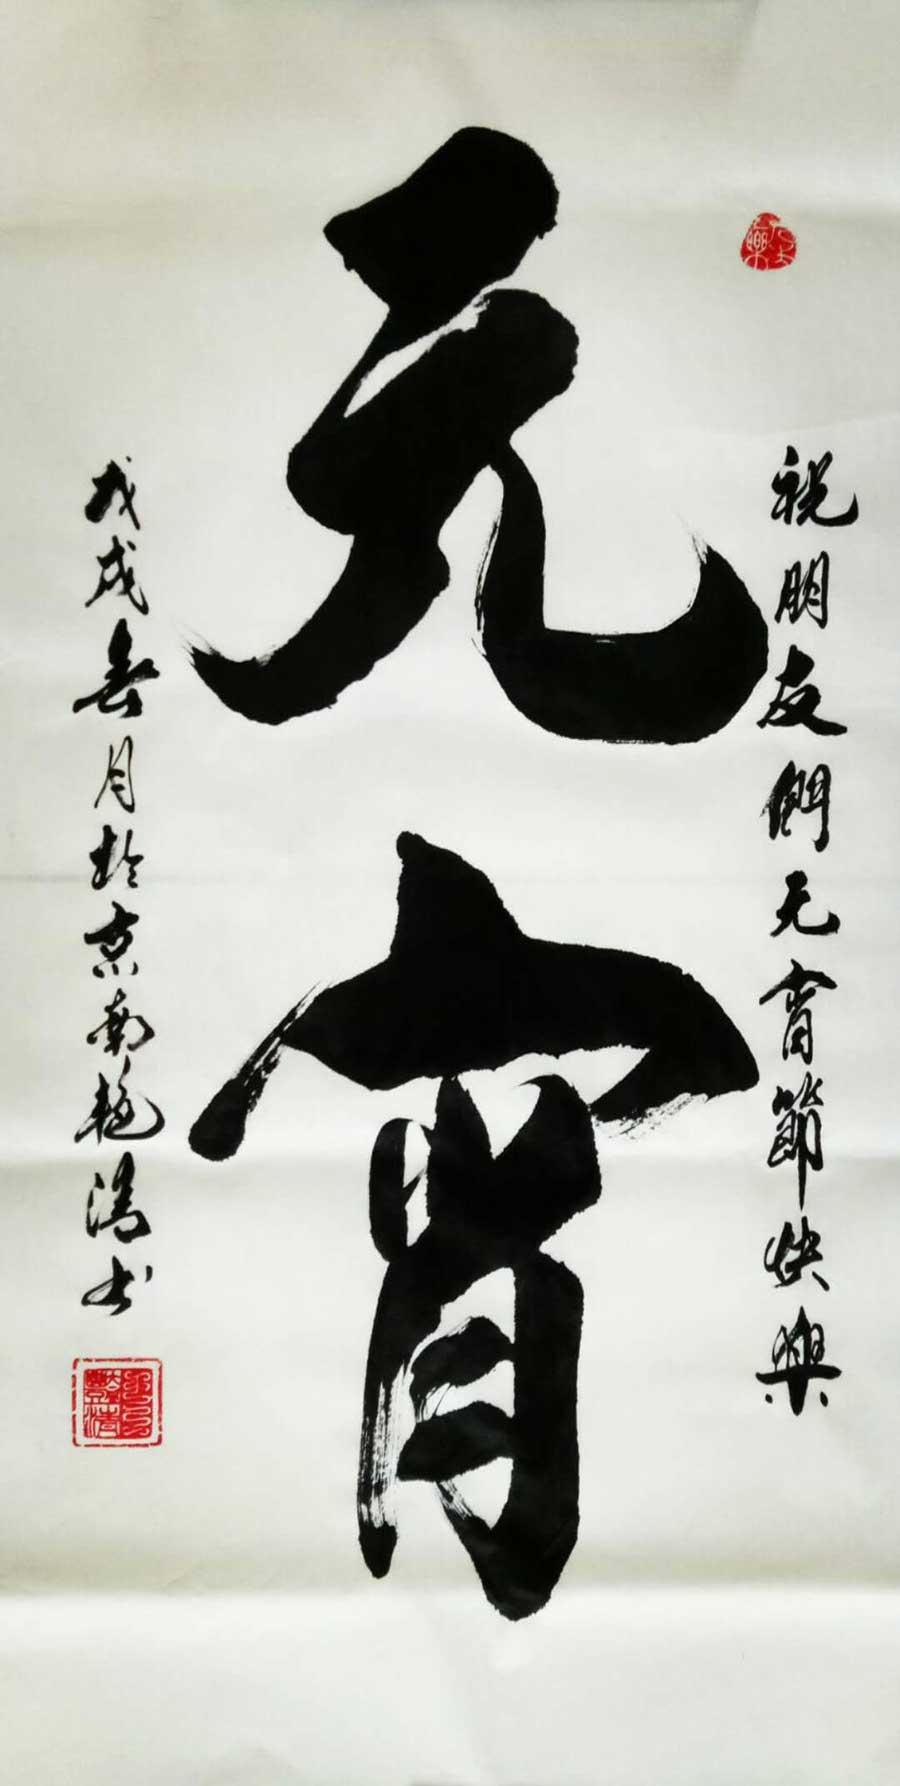 祝朋友們元宵節快樂
元宵
戊戌春月於京南艳清书